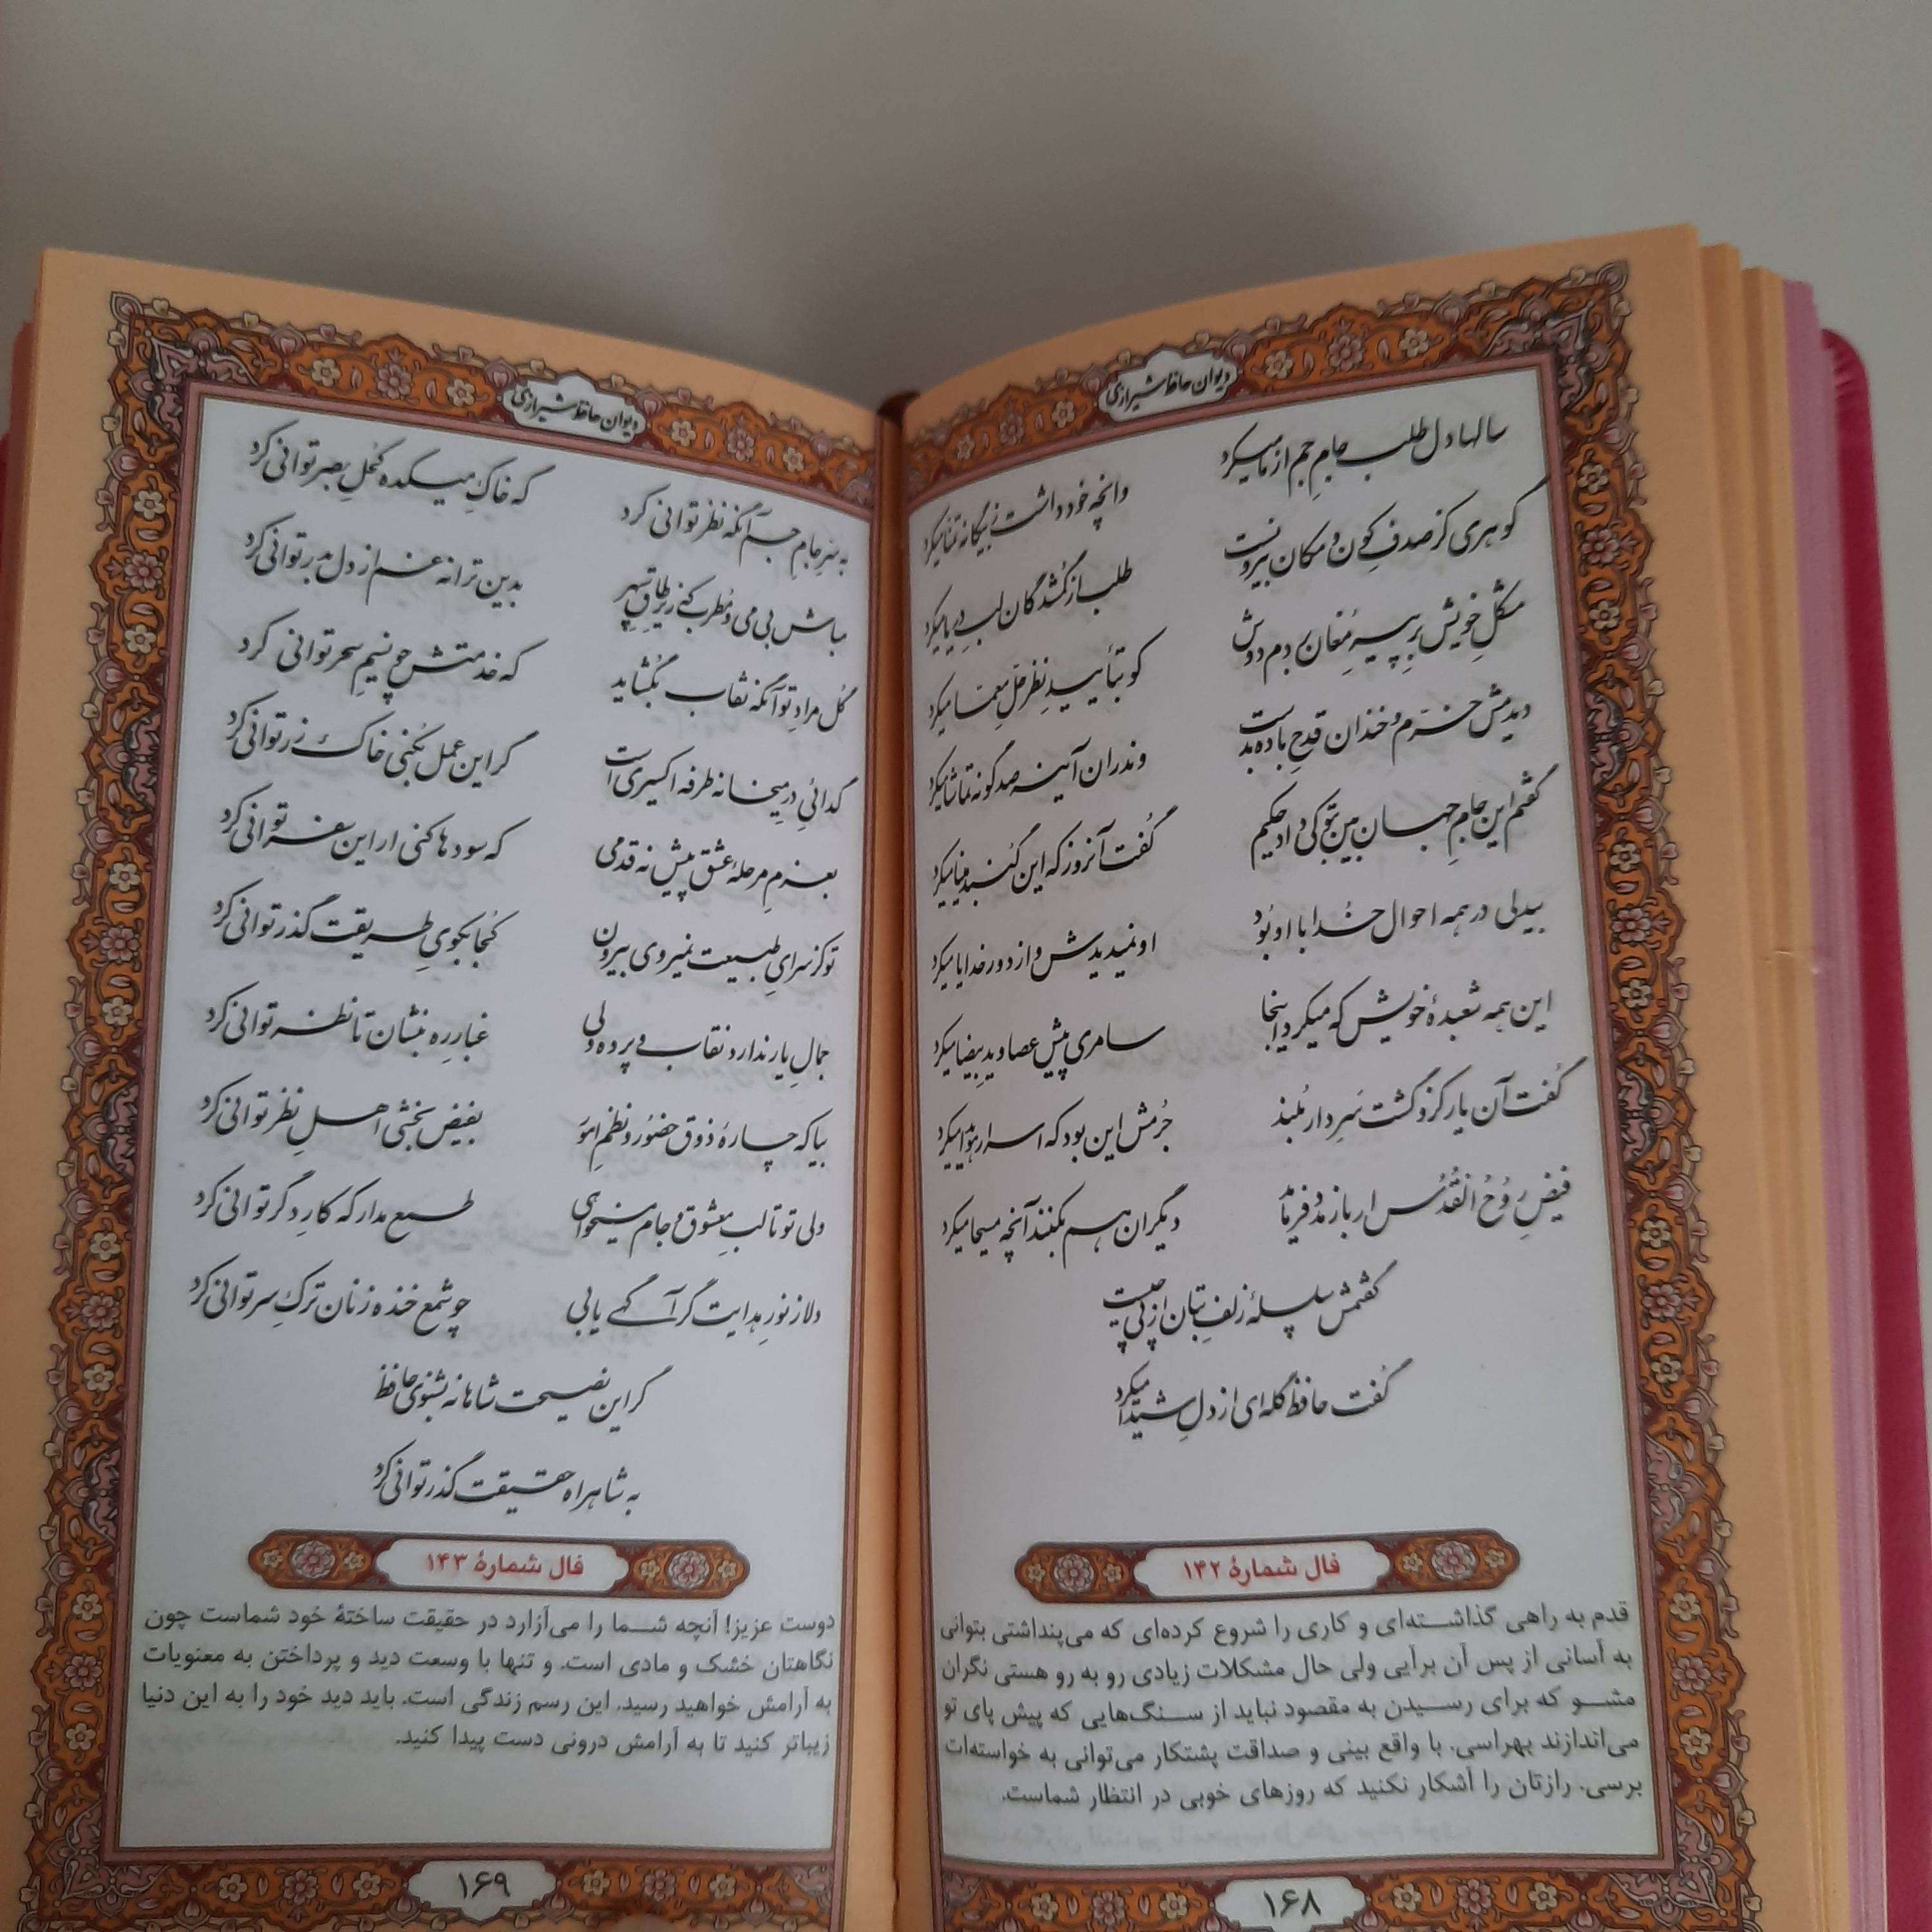 دیوان حافظ شیرازی
سالها دل طلب جامِ جم از ما میکرد
وانچه خود داشت ز بیگانه تمنا میکرد
گوهری کز صدفِ کون و مکان بیرونست
طلب از گمشدگان لبِ دریا میکرد
مشکلِ خویش برِ پیرِ مُغان بردم دوش
کو بتأییدِ نظر حلِّ معمّا میکرد
دیدمش خرّم و خندان قدحِ باده بدست
وندران آینه صد گونه تماشا میکرد
گفتم این جامِ جهان بین بتو کی داد حکیم
گفت آنروز که این گنبد مینا میکرد
بیدلی در همه احوال خدا با او بُود
او نمیدیدش و از دور خدایا میکرد
این همه شعبدهٔ خویش که میکرد اینجا
سامری پیش عصا و یدِ بیضا میکرد
گفت آن یار کزو گشت سَرِ دار بُلند
جُرمش این بود که اسرار هُویدا میکرد
فیضِ رُوحُ القُدُس ار باز مدد فرماید
دیگران هم بکنند آنچه مسیحا میکرد
گفتمش سلسلهٔ زلفِ بتان از پی چیست
گفت حافظ گله‌ای از دلِ شیدا میکرد
فال شمارهٔ ۱۴۲
قدم به راهی گذاشته‌ای و کاری را شروع کرده‌ای که می‌پنداشتی بتوانی
به آسانی از پس آن برآیی ولی حال مشکلات زیادی رو به رو هستی نگران
مشو که برای رسیدن به مقصود نباید از سنگ‌هایی که پیش پای تو
می‌اندازند بهراسی. با واقع بینی و صداقت پشتکار می‌توانی به خواسته‌ات
برسی. رازتان را آشکار نکنید که روزهای خوبی در انتظار شماست.
۱۶۸
دیوان حافظ شیرازی
به سّرِ جامِ جم آنگه نظر توانی کرد
که خاکِ میکده کُحلِ بصر توانی کرد
مباش بی می و مُطرب که زیرِ طاقِ سپهر
بدین ترانه غم از دل بدر توانی کرد
گُل مرادِ تو آنگه نقاب بگشاید
که خدمتش چو نسیمِ سحر توانی کرد
گدائیِ درِ میخانه طرفه اکسیری است
گر این عمل بکنی خاک زر توانی کرد
بعزمِ مرحلهٔ عشق پیش نه قدمی
که سودها کنی ار این سفر توانی کرد
تو کز سرای طبیعت نمیروی بیرون
کُجا بکوی طریقت گذر توانی کرد
جمالِ یار ندارد نقاب و پرده ولی
غبارِ ره بنشان تا نظر توانی کرد
بیا که چارهٔ ذوق حضُور و نظمِ امُور
بفیض بخشی اهلِ نظر توانی کرد
ولی تو تا لبِ معشوق و جام میخواهی
طمع مدار که کارِ دگر توانی کرد
دلا ز نورِ هدایت گر آگهی یابی
چو شمع خنده زنان ترکِ سر توانی کرد
گر این نصیحت شاهانه بشنوی حافظ
به شاهراه حقیقت گذر توانی کرد
فال شمارهٔ ۱۴۳
دوست عزیز! آنچه شما را می‌آزارد در حقیقت ساختهٔ خود شماست چون
نگاهتان خشک و مادی است. و تنها با وسعت دید و پرداختن به معنویات
به آرامش خواهید رسید. این رسم زندگی است. باید دید خود را به این دنیا
زیباتر کنید تا به آرامش درونی دست پیدا کنید.
۱۶۹